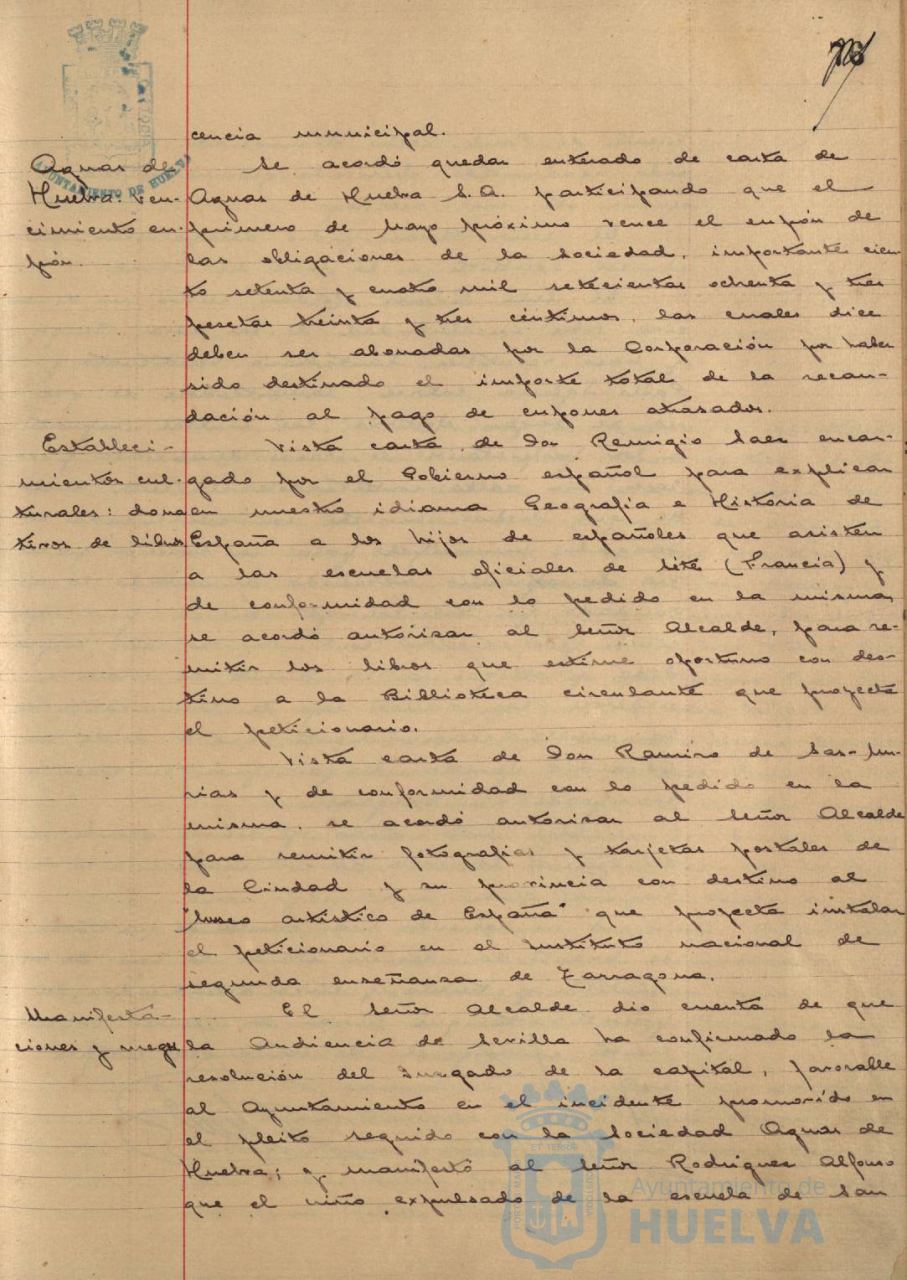 cencia municipal.
Aguas de
Huelva: Ven-
cimiento cu-
pón.
Se acordó quedar enterado de carta de
Aguas de Huelva S.A. participando que el
primero de Mayo próximo vence el cupón de
las obligaciones de la Sociedad, importante cien
to setenta y cuatro mil setecientas ochenta y tres
pesetas treinta y tres céntimos, las cuales dice
deben ser abonadas por la Corporación por haber
sido destinado el importe total de la recau-
dación al pago de cupones atrasados.
Estableci-
mientos cul-
turales: dona
tivos de libros
Vista carta de Don Remigio Saer encar-
gado por el Gobierno español para explicar
en nuestro idioma Geografía e Historia de
España a los hijos de españoles que asisten
a las escuelas oficiales de (Francia) y
de conformidad con lo pedido en la misma,
se acordó autorizar al Señor Alcalde, para re-
mitir los libros que estime oportuno con des-
tino a la Biblioteca circulante que proyecta
el peticionario.
Vista carta de Don Ramiro de
y de conformidad con lo pedido en la
misma, se acordó autorizar al Señor Alcalde
para remitir fotografias y tarjetas postales de
la Ciudad y su provincia con destino al
"Museo artístico de España" que proyecta instalar
el peticionario en el Instituto nacional de
segunda enseñanza de Tarragona.
Manifesta-
ciones y ruegos
El Señor Alcalde dio cuenta de que
la Audiencia de Sevilla ha confirmado la
resolución del Juzgado de la capital, favorable
al Ayuntamiento en el incidente promovido en
el pleito seguido con la Sociedad Aguas de
Huelva; y manifestó al Señor Rodriguez Alfonso
que el niño expulsado de la escuela de San
AYUNTAMIENTO DE HUELVA
Ayuntamiento de
HUELVA